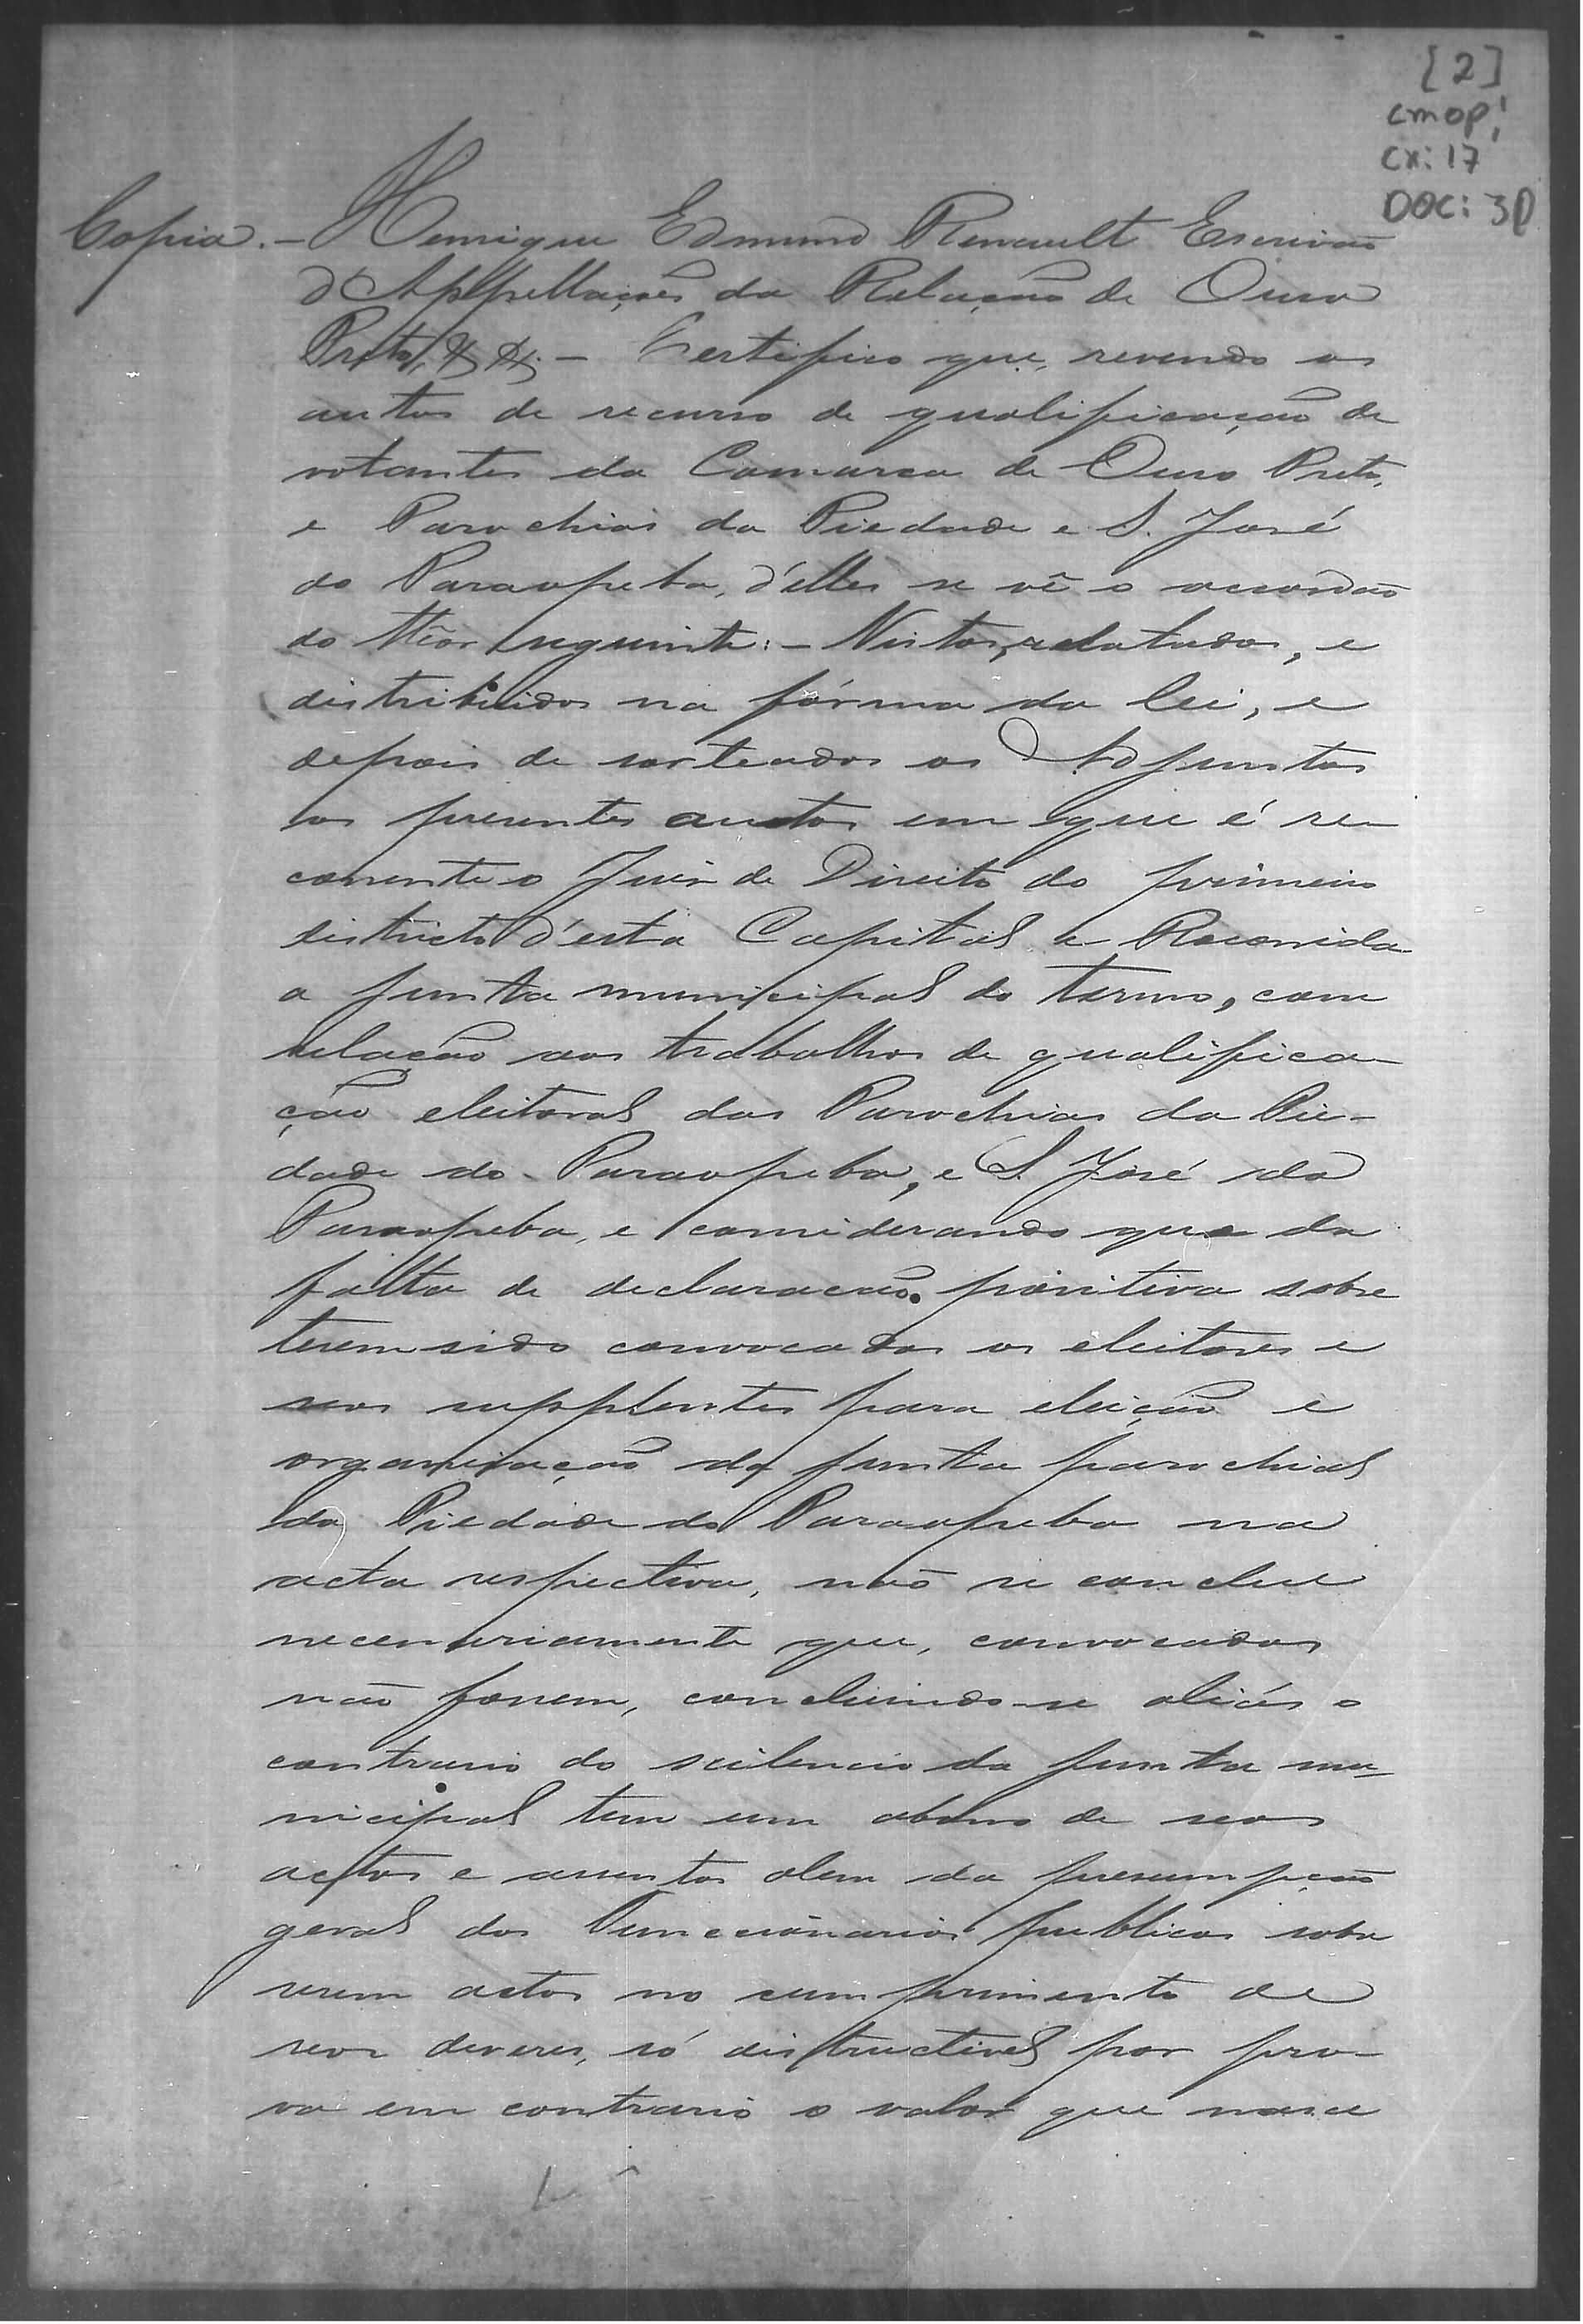 [2]
cmop!
cx: 17
DOC: 30
Copia. – Henrique Edmundo Renault Escrivão
d'Appellações da Relação de Ouro
Preto, &. &. – Certifico que, revendo os
autos de recurso de qualificação de
votantes da Comarca de Ouro Preto,
e Parochias da Piedade e S. José
do Paraopeba, d'elles se vê o accordão
do theor seguinte: – Vistos, relatados, e
distribuidos na fórma da lei, e
depois de sorteados os Adjuntos
os presentes autos em que é re-
corrente o Juiz de Direito do primeiro
districto d'esta Capital e Recorrida
a junta municipal do termo, com
relação aos trabalhos de qualifica-
ção eleitoral das Parochias da Pie-
dade do Paraopeba, e S. José do
Paraopeba, e considerando que da
falta de declaração positiva sobre
terem sido convocados os eleitores e
seos supplentes para eleição e
organisação da junta parochial
da Piedade do Paraopeba na
acta respectiva, não se conclue
necessariamente que, convocados
não forem, concluindo-se aliás o
contrario do scilencio da junta mu-
nicipal tem um abono de seos
actos e assentos alem da presumpção
geral dos Funccionarios publicos sobre
serem actos no cumprimento de
seos deveres, só distructivel por pro-
va em contrario o valor que nasce